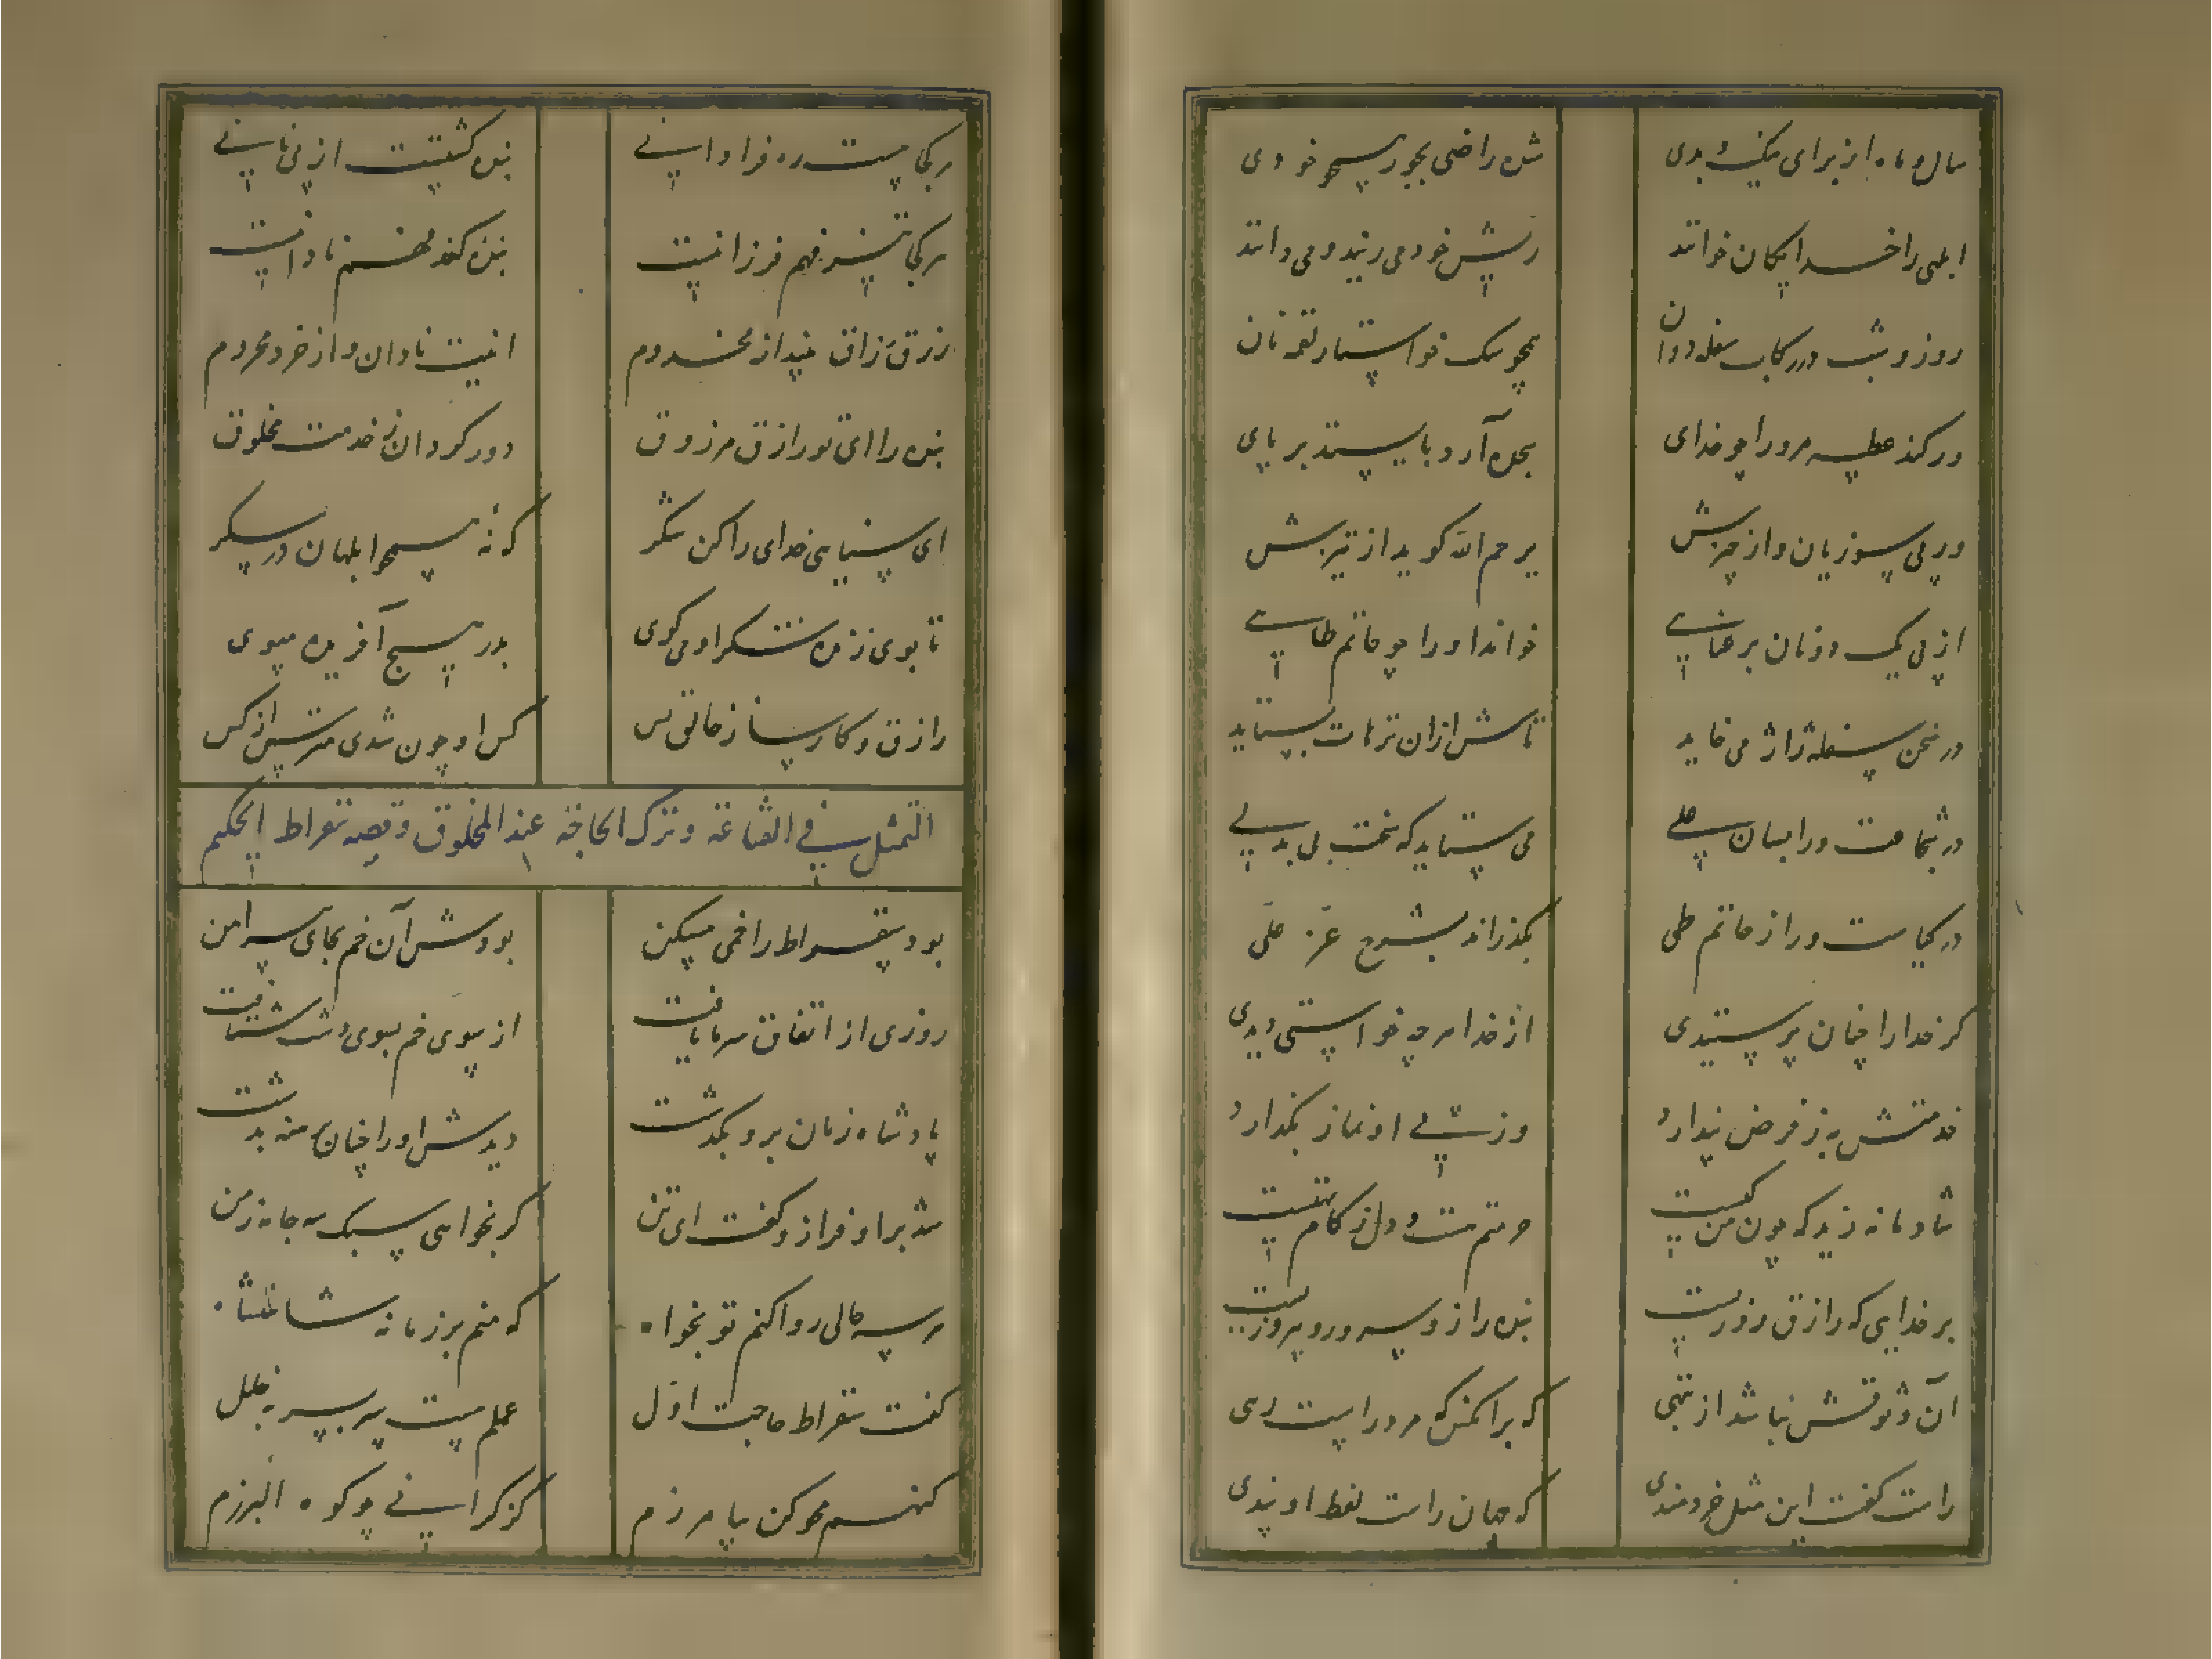 سال و ماه از برای نیک و بدی شده راضی بجور همچو خودی
ابلهی را خدایگان خوانند ریش خود می ریند و می دانند
روز و شب در رکاب سفله دوان همچو سگ خواستار لقمه نان
ور کند عطسه مرورا چو خدای سجده آرد بایستد بر پای
ور پی سوزیان و از چیزش یرحم الله گوید از تیزش
از پی یک دو نان برعنایی خواند او را چو حاتم طایی
در سخن سفله ژاژ می خاید تاش ازان ترهات بستاید
در شجاعت ورا بسان علی می ستاید که سخت بی بدلی
در کیاست ورا ز حاتم طی بگذراند بشرح عز علی
گر خدا را چنان پرستیدی از خدا هرچه خواستی دیدی
خدمتش به ز فرض پندارد وز پی او نماز بگذارد
شادمانه زید که چون من کیست حرمتم هست و دل ز کام تهیست
بر خدایی که رازق روزیست بنده را زو سرور و پیروزیست
آن وثوقش نباشد از تنهی که بر آکس که مرورا ست رهی
راست گفت این مثل خردمندی که جهان راست لفظ او پندی
هر کجا هست ره فراوانی بنده گشتیت از پی نانی
هر کجا نیز فهم فرزانیست بنده کند فهم نادانیست
رزق رزاق بیند از مخدوم اینت نادان و از خرد محروم
بنده را ای تو رازق مرزوق دور گردان ز خدمت مخلوق
ای سنایی خدای را کن شکر که نه همچو ابلهان در سکر
تا بوی زنده شکر او می گوی بدر هیچ آفریده مپوی
رازق و کارساز خالق بس کس او چون شدی مترس از کس
التمثل فی القناعة و ترک الحاجة عند المخلوق و قصه سقراط الحکیم
بود سقراط را خمی مسکن بودش آن خم بجای پیراهن
روزی از اتفاق سرما یافت از سوی خم بسوی دشت شتافت
پادشاه زمان برو بگذشت دیدش او را چنان برهنه بدشت
شد بر او فراز و گفت ای تن گر بخواهی سبک سه جامه ز من
هر سه حالی روا کنم تو بخواه که منم بر زمانه شاهنشاه
گفت سقراط حاجت اول عملم هست سر بسر به خلل
گنهم محو کن بیامرزم کز گرانی چو کوه البرزم